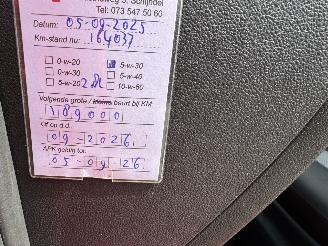 5, Schijndel
Tel: 073 547 50 60
Datum: 05-09-2025
Km-stand nu: 164037
0-w-20 5-w-30
0-w-30 5-w-40
5-w-20 10-w-60
Volgende grote / kleine beurt bij KM
Of op d.d.
09-2026
APK geldig tot:
05-09-26